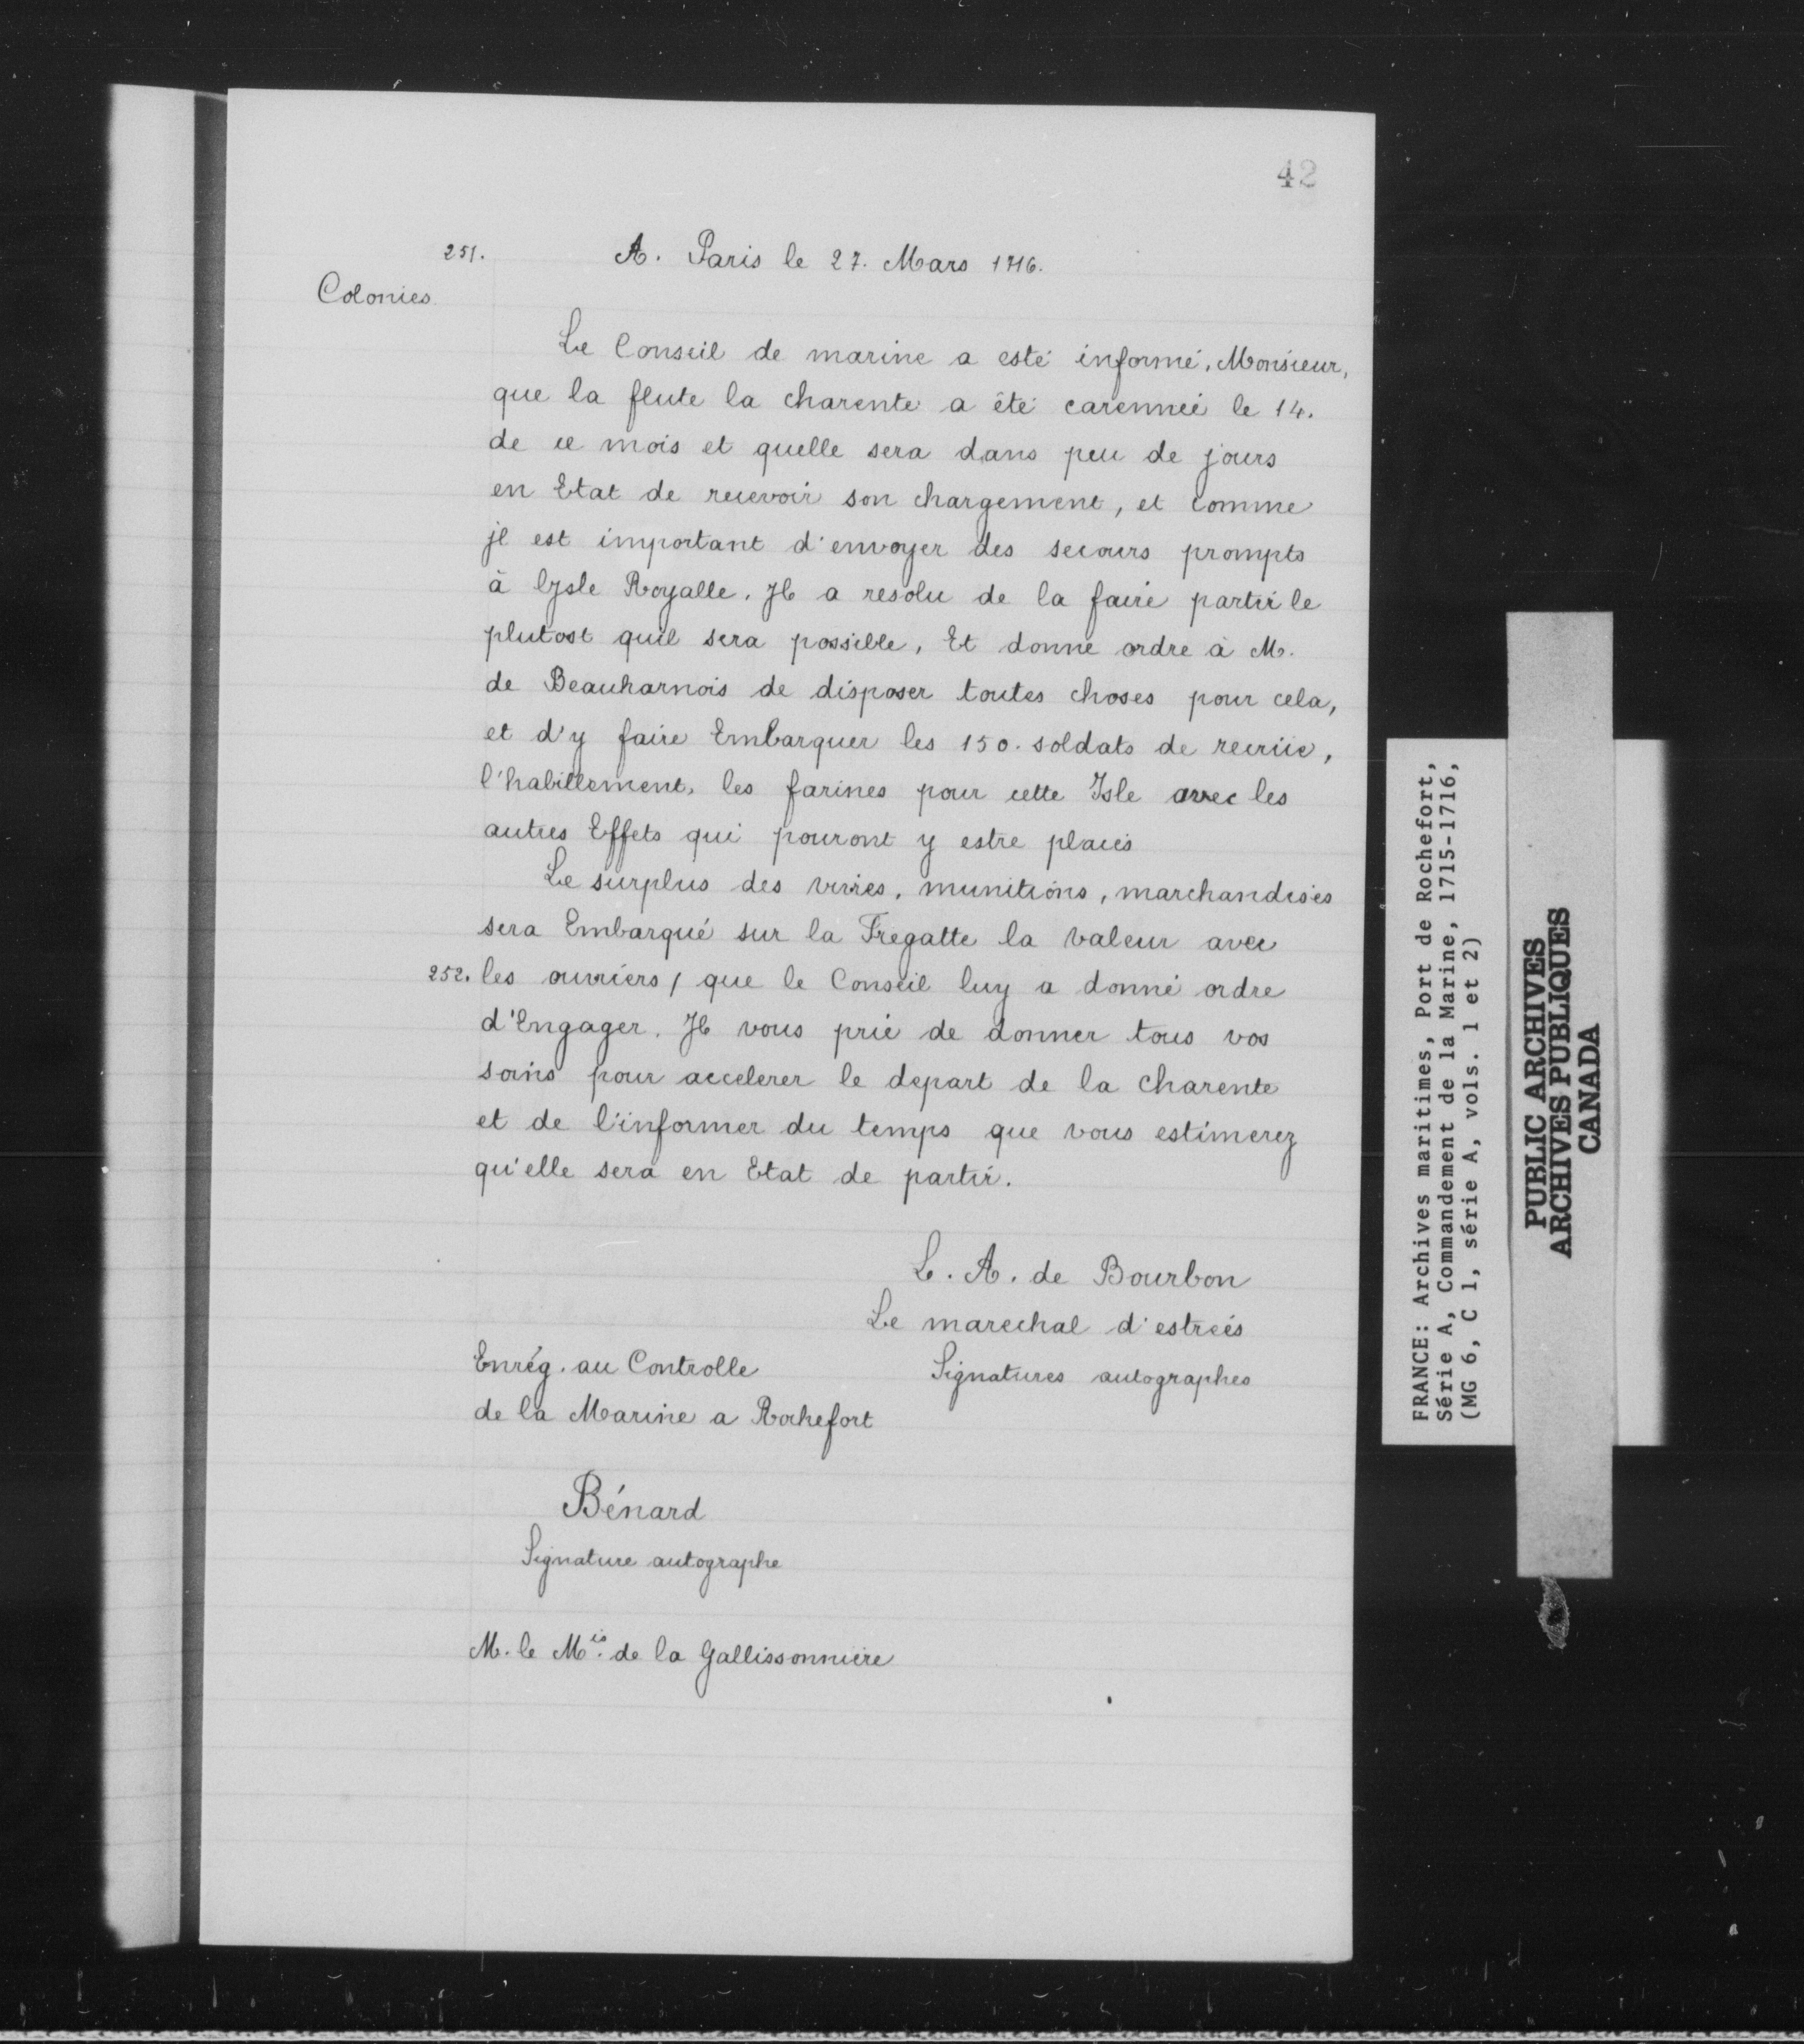 42
251.
A. Paris le 27. Mars 1716.
Colonies
Le Conseil de marine a esté informé, Monsieur,
que la flute la charente a été carennée le 14.
de ce mois et quelle sera dans peu de jours
en Etat de recevoir son chargement, et comme
jl est important d'envoyer des secours prompts
à lysle Royalle. Jl a resolu de la faire partir le
plutost quil sera possible, Et donne ordre à M.
de Beauharnois de disposer toutes choses pour cela,
et d'y faire Embarquer les 150. soldats de recrüe,
l'habillement, les farines pour cette Isle avec les
autres Effets qui pouront y estre placés
Le surplus des vivres, munitions, marchandises
sera Embarqué sur la Fregatte la Valeur avec
252. les ouvriers / que le Conseil luy a donné ordre
d'Engager. Jl vous prie de donner tous vos
soins pour accelerer le depart de la Charente
et de l'informer du temps que vous estimerez
qu'elle sera en Etat de partir.
L. A. de Bourbon
Le marechal d'estrées
Signatures autographes
Enrég. au Controlle
de la Marine a Rochefort
Bénard
Signature autographe
M. le Mis. de la Gallissonniere
FRANCE: Archives maritimes, Port de Rochefort,
Série A, Commandement de la Marine, 1715-1716,
(MG 6, C 1, série A, vols. 1 et 2)
PUBLIC ARCHIVES
ARCHIVES PUBLIQUES
CANADA